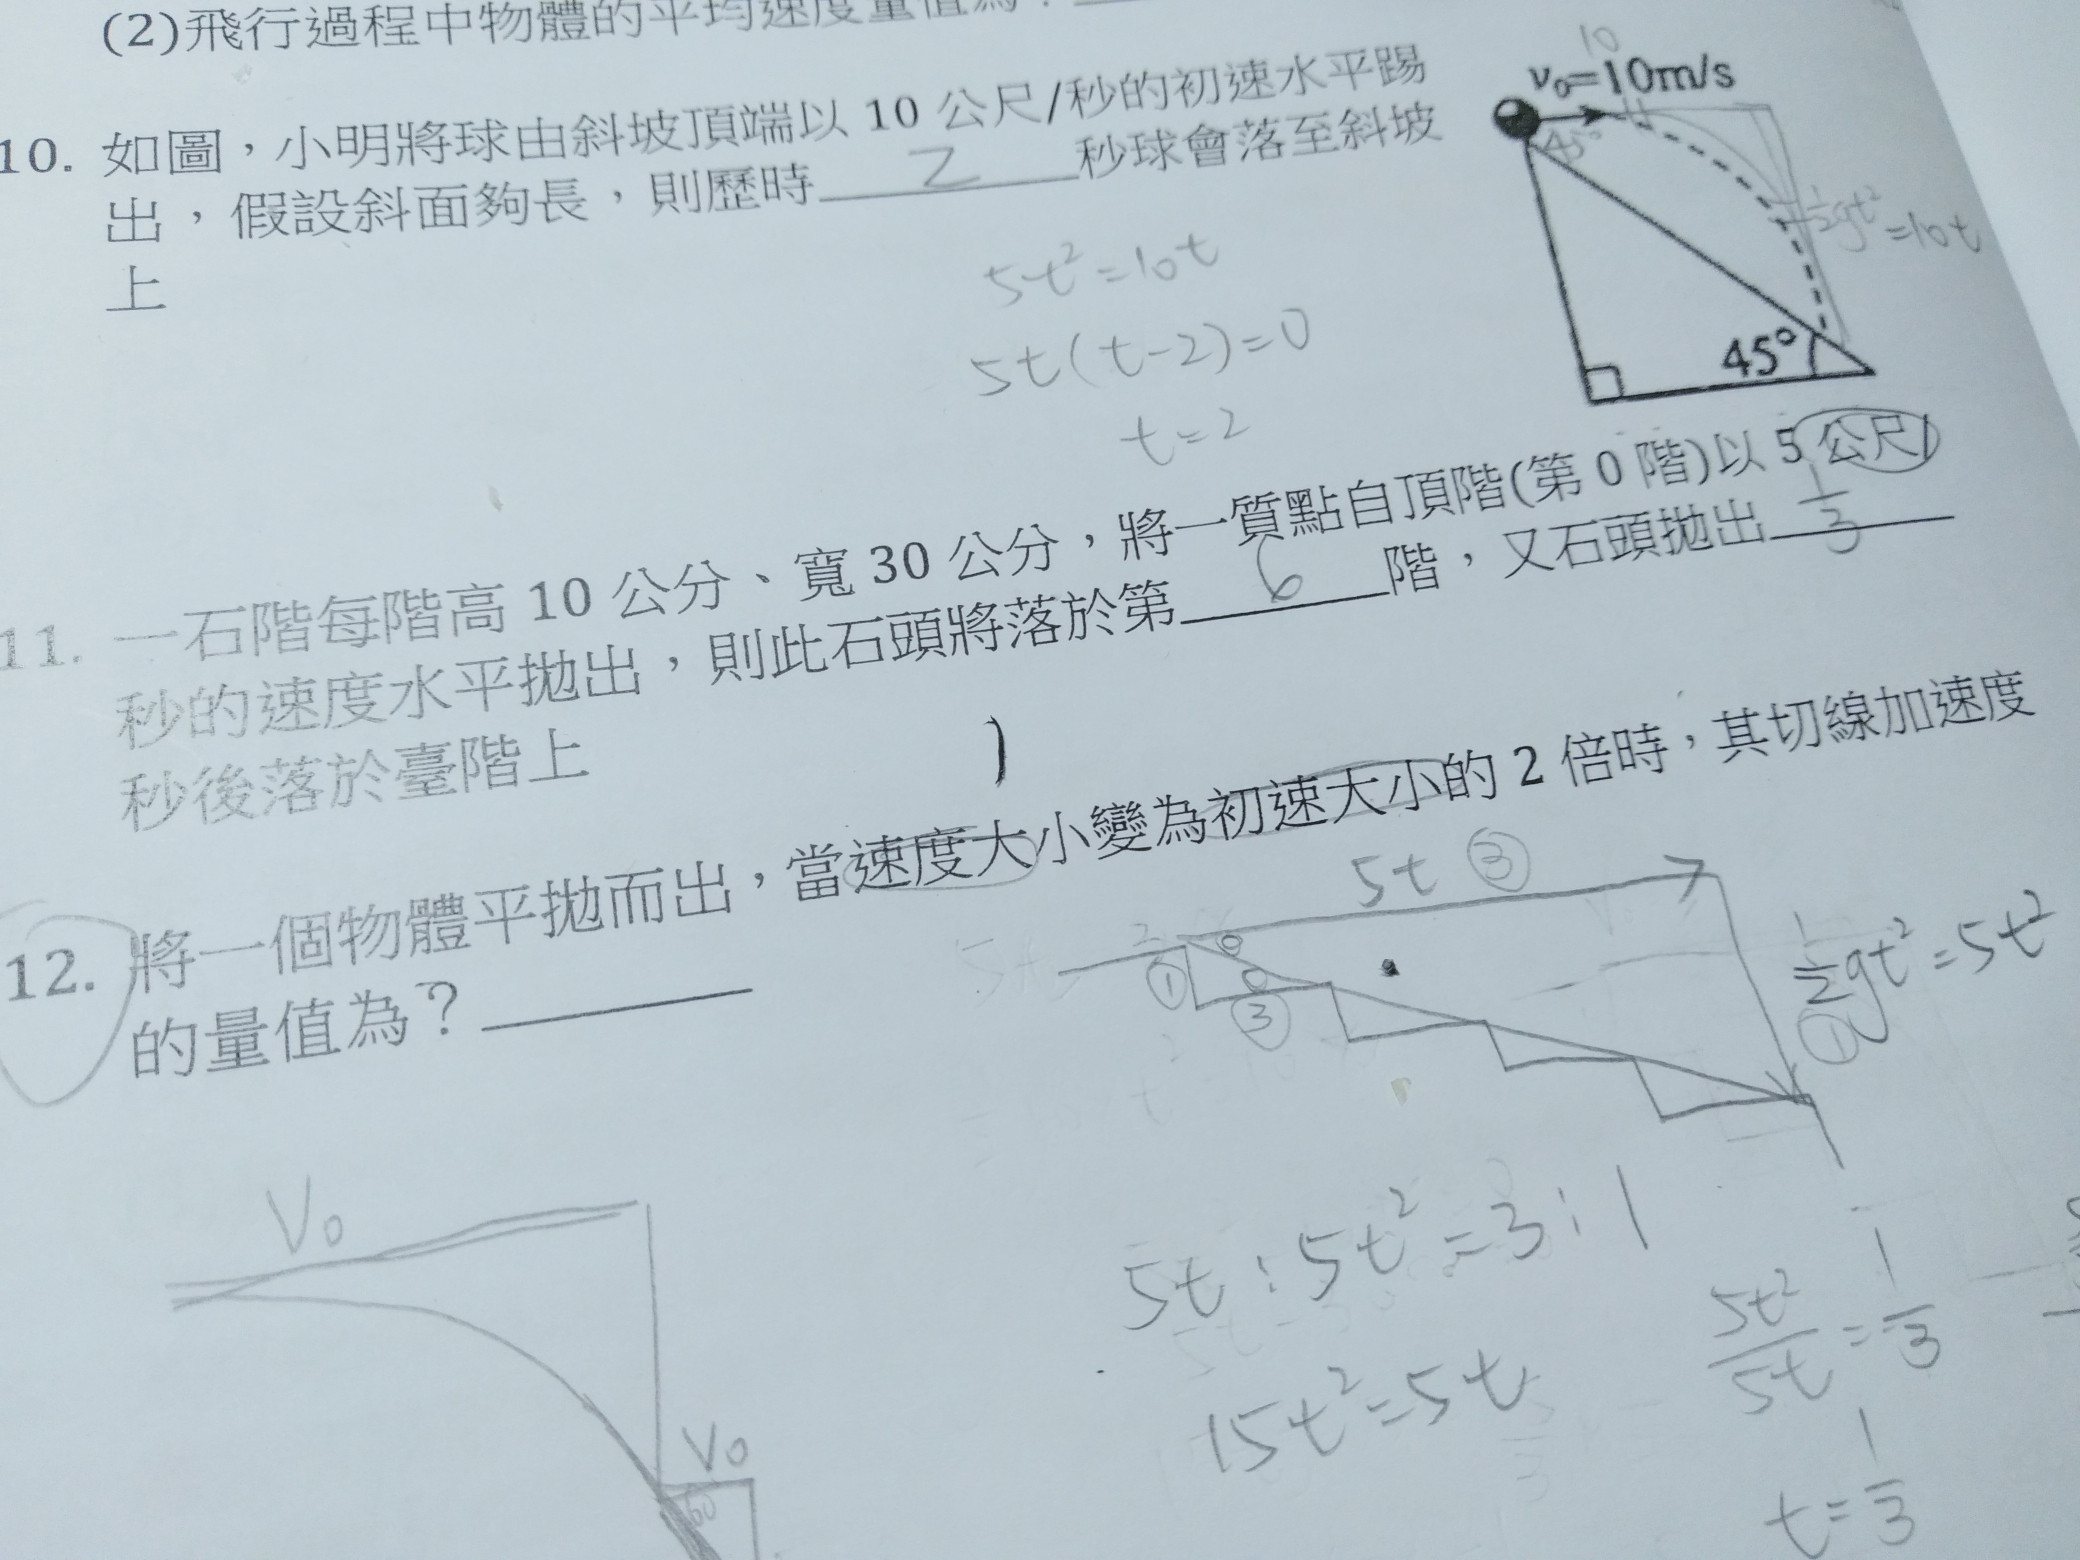 (2)飛行過程中物體的平均速度量值為？
10. 如圖，小明將球由斜坡頂端以 10 公尺/秒的初速水平踢
出，假設斜面夠長，則歷時 2 秒球會落至斜坡
上
10
v₀=10m/s
45°
½gt²=10t
45°
5t²=10t
5t(t-2)=0
t=2
11. 一石階每階高 10 公分、寬 30 公分，將一質點自頂階(第 0 階)以 5 公尺/
秒的速度水平拋出，則此石頭將落於第 6 階，又石頭拋出 1/3
秒後落於臺階上
12. 將一個物體平拋而出，當速度大小變為初速大小的 2 倍時，其切線加速度
的量值為？
5t ③
① ③
½gt²=5t²
①
V₀
V₀
60
5t:5t²=3:1
15t²=5t
5t²/5t=1/3
t=1/3